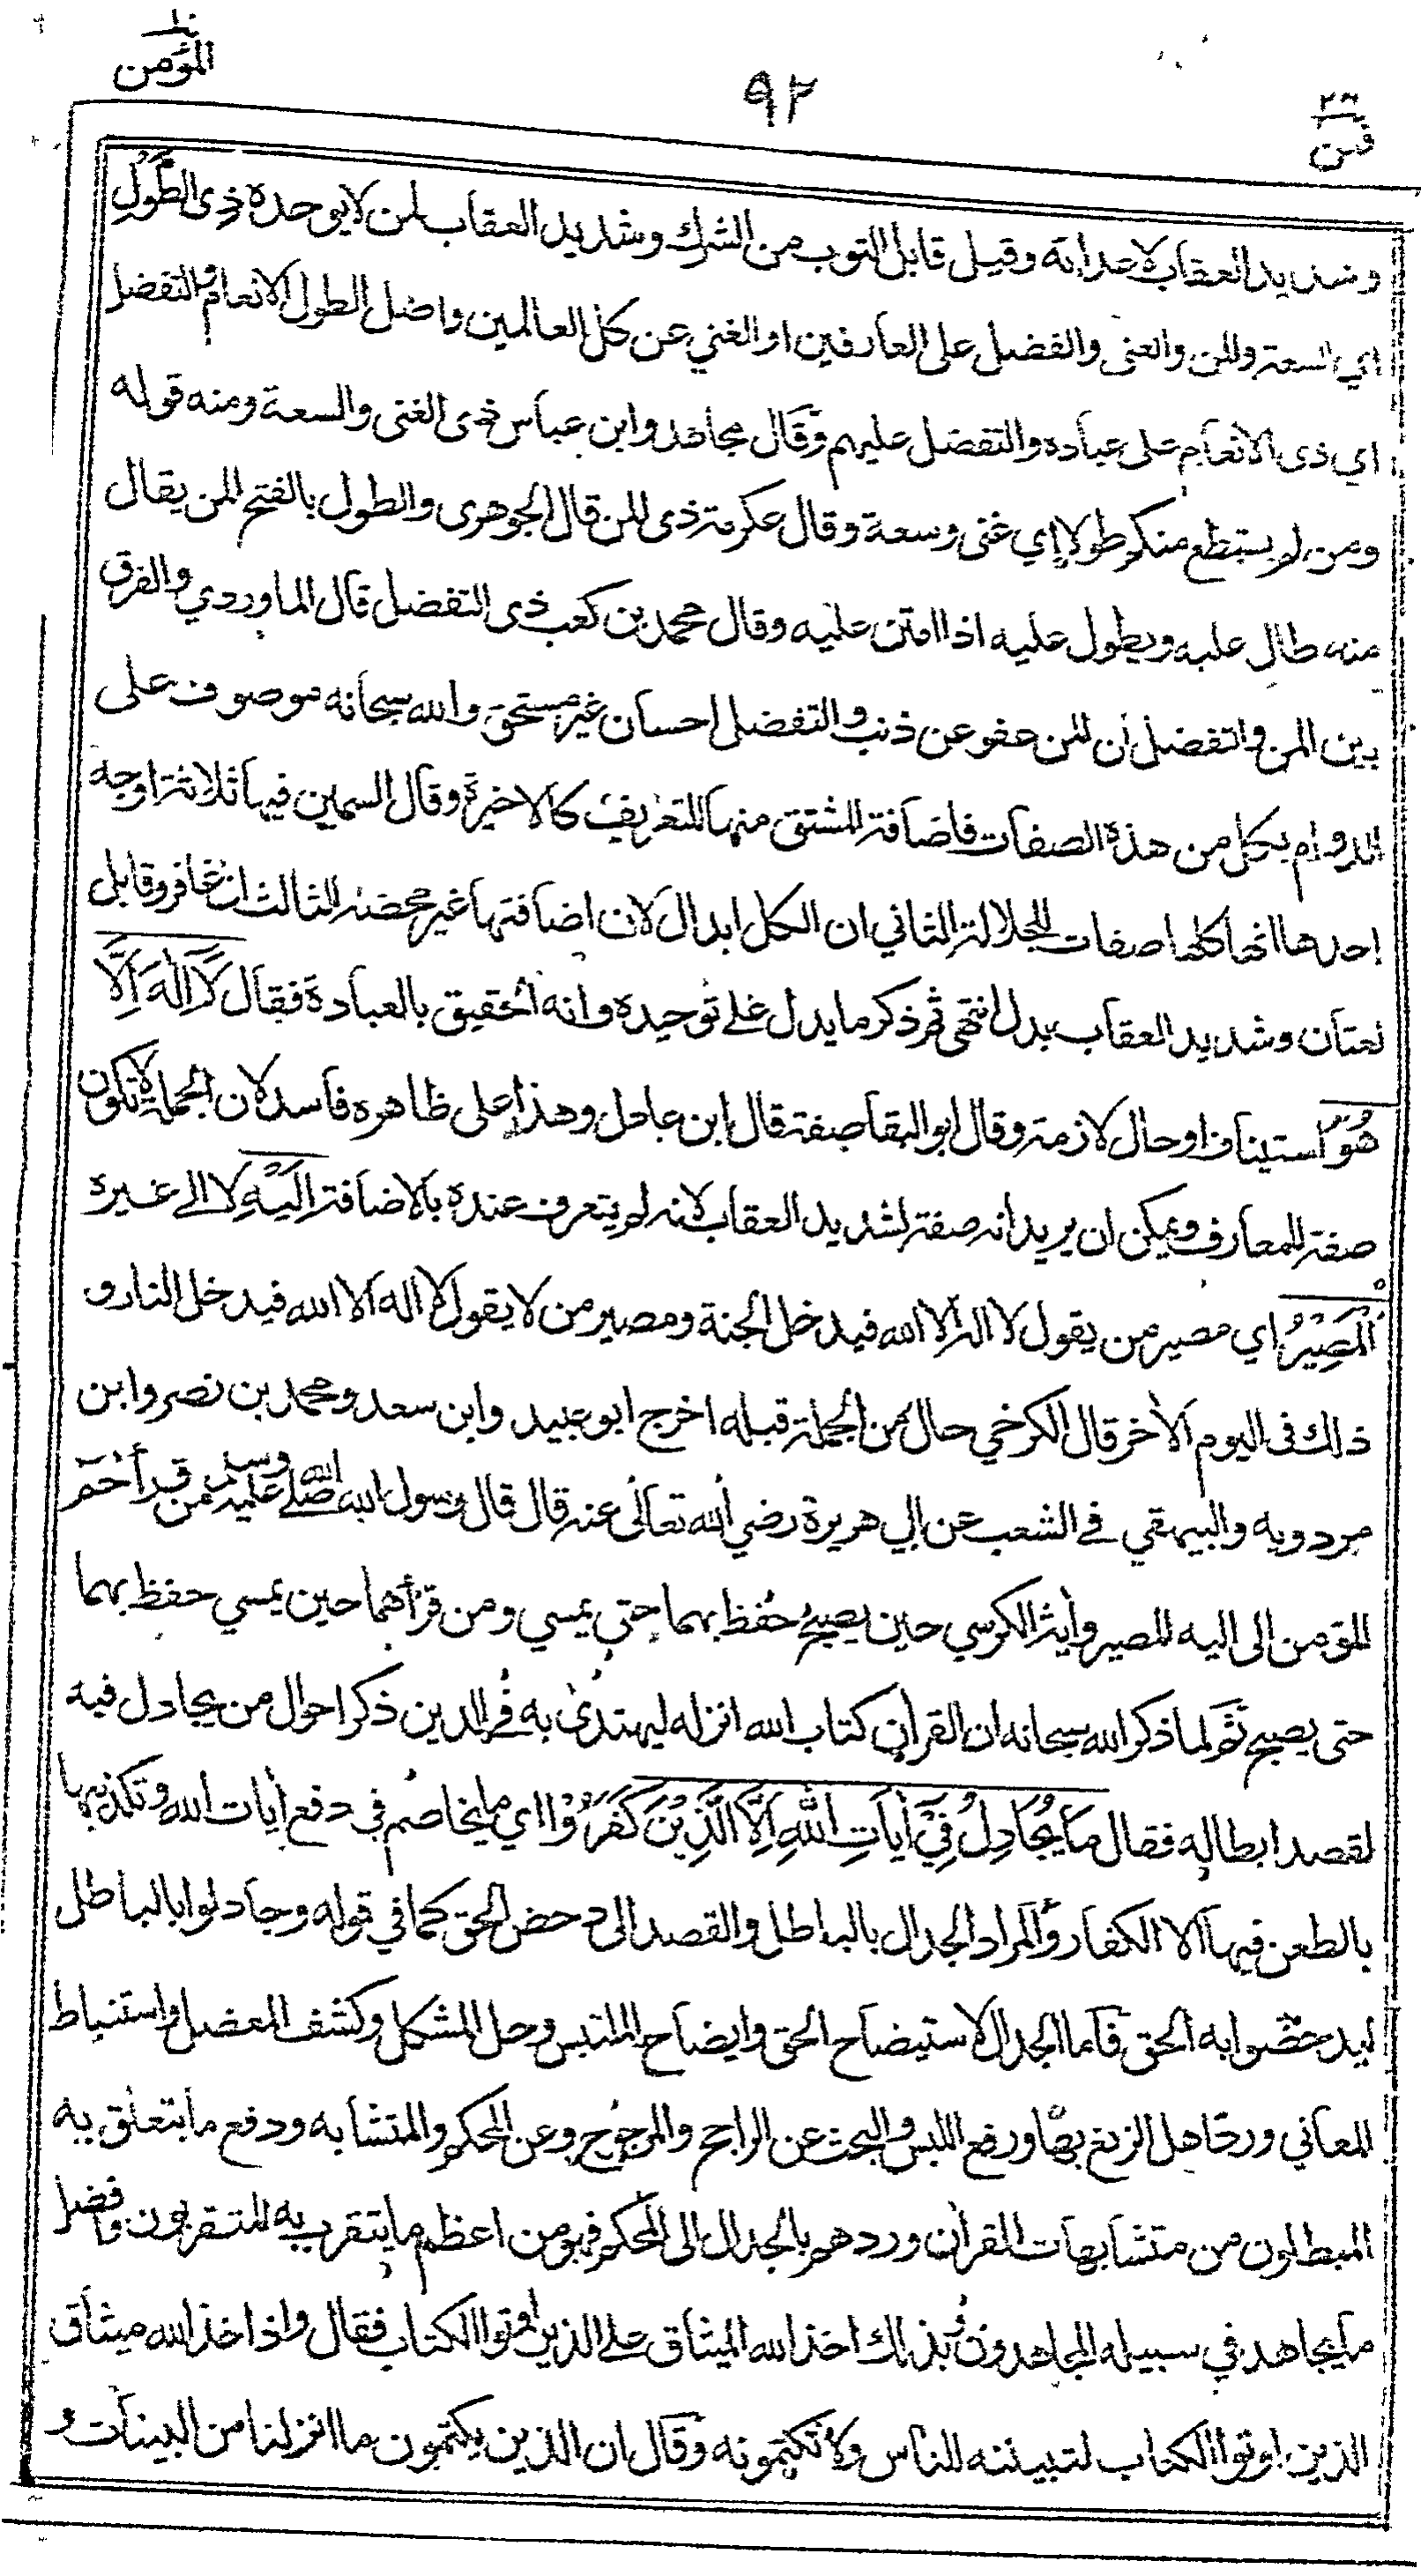 المؤمن
٩٢
فمن
وشديد العقاب لاعدائه وقيل قابل التوب من الشرك وشديد العقاب لمن لا يوحده ذِي الطَّوْلِ
اي السعة والمن والغنى والفضل على العارفين او الغني عن كل العالمين واصل الطول الانعام والتفضل
اي ذى الانعام على عباده والتفضل عليهم وقال مجاهد وابن عباس ذى الغنى والسعة ومنه قوله
ومن لم يستطع منكم طولا اي غنى وسعة وقال عكرمة ذى المن قال الجوهرى والطول بالفتح المن يقال
منه طال عليه ويطول عليه اذا امتن عليه وقال محمد بن كعب ذى التفضل قال الماوردي والفرق
بين المن والتفضل ان المن عفو عن ذنب والتفضل احسان غير مستحق والله سبحانه موصوف على
الدوام بكل من هذه الصفات فاضافة المشتق منها للتعريف كالاخيرة وقال السمين فيها ثلاثة اوجه
احدها انها كلها صفات للجلالة الثاني ان الكل ابدال لان اضافتها غير محضة الثالث ان غافر وقابل
نعتان وشديد العقاب بدل انتهى ثم ذكر ما يدل على توحيده وانه الحقيق بالعبادة فقال لَآ اِلٰهَ اِلَّا
هُوَ استيناف او حال لازمة وقال ابو البقا صفة قال ابن عادل وهذا على ظاهره فاسد لان الجملة لا تكون
صفة للمعارف ويمكن ان يريد انه صفة لشديد العقاب لانه لم يتعرف عنده بالاضافة اِلَيْهِ لا الى غيره
الْمَصِيْرُ اي مصير من يقول لا اله الا الله فيدخل الجنة ومصير من لا يقول لا اله الا الله فيدخل النار و
ذلك فى اليوم الاخر قال الكرخي حال من الجملة قبله اخرج ابو عبيد وابن سعد ومحمد بن نصر وابن
مردويه والبيهقي في الشعب عن ابي هريرة رضي الله تعالى عنه قال قال رسول الله صلى الله عليه وسلم من قرأ حٰم
المؤمن الى اليه المصير وأية الكرسي حين يصبح حُفظ بهما حتى يمسي ومن قرأهما حين يمسي حفظ بهما
حتى يصبح ثم لما ذكر الله سبحانه ان القرأن كتاب الله انزله ليهتدى به في الدين ذكر احوال من يجادل فيه
لقصد ابطاله فقال مَا يُجَادِلُ فِيْٓ اٰيَاتِ اللّٰهِ اِلَّا الَّذِيْنَ كَفَرُوْا اي ما يخاصم في دفع أيات الله وتكذيبها
بالطعن فيها الا الكفار والمراد الجدال بالباطل والقصد الى دحض الحق كما في قوله وجادلوا بالباطل
ليدحضوا به الحق فاما الجدال لاستيضاح الحق وايضاح الملتبس وحل المشكل وكشف المعضل واستنباط
المعاني ورد اهل الزيغ بها ورفع اللبس والبحث عن الراجح والمرجوح وعن المحكم والمتشابه ودفع ما يتعلق به
المبطلون من متشابهات القرأن وردهم بالجدال الى المحكم فهو من اعظم ما يتقرب به المتقربون وافضل
ما يجاهد في سبيله المجاهدون وبذلك اخذ الله الميثاق على الذين اوتوا الكتاب فقال واذ اخذ الله ميثاق
الذين اوتوا الكتاب لتبيننه للناس ولا تكتمونه وقال ان الذين يكتمون ما انزلنا من البينات و